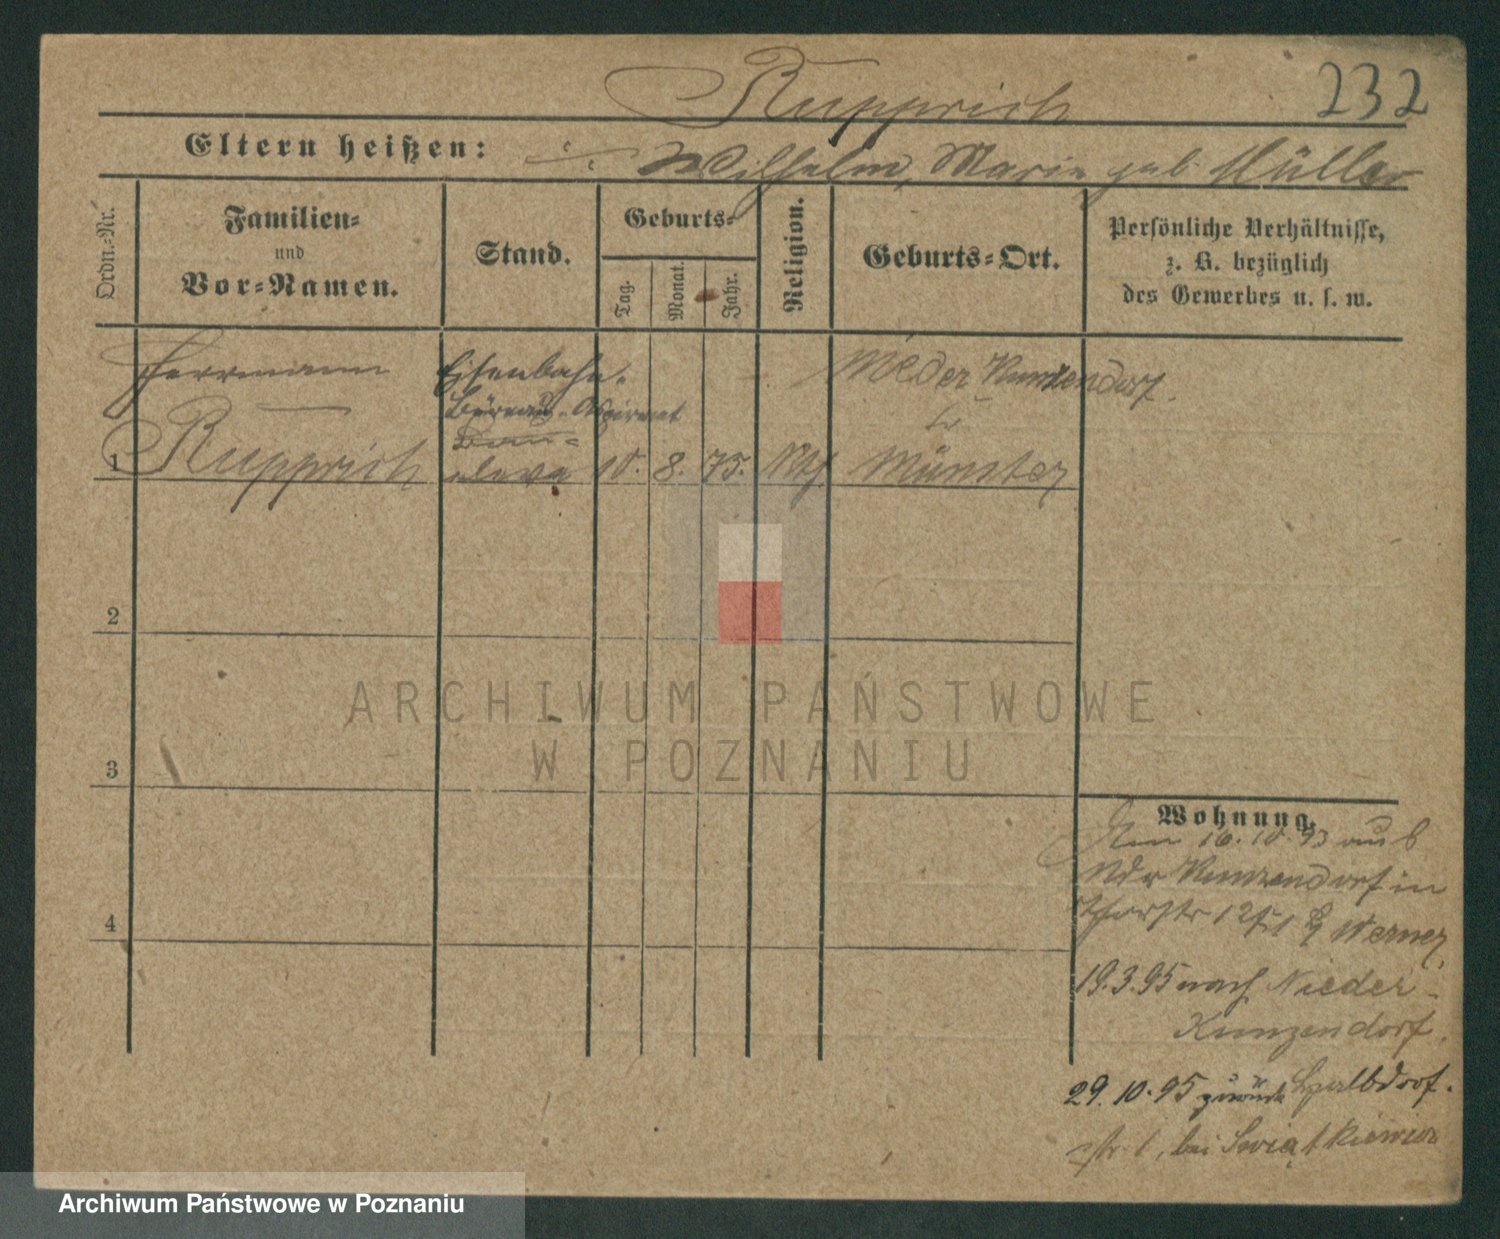 Rupprich
232
Eltern heißen: Wilhelm, Marie geb. Müller
Ordn.-Nr.
Familien-
und
Vor-Namen.
Stand.
Geburts-
Tag.
Monat.
Jahr.
Religion.
Geburts-Ort.
Persönliche Verhältnisse,
z. B. bezüglich
des Gewerbes u. s. w.
Herrmann
Eisenbahn-
Büreau-Aspirant
Nieder Kunzendorf
Kr
1 Rupprich
eleve 10. 8. 75. Münster
2
3
4
Wohnung.
Am 16. 10. 93 aus
Ndr Kunzendorf in
Werner
19.3.95 nach Nieder-
Kunzendorf.
29.10.95 zurück
str. 1, bei Swiątkiewicz
ARCHIWUM PAŃSTWOWE
W POZNANIU
Archiwum Państwowe w Poznaniu